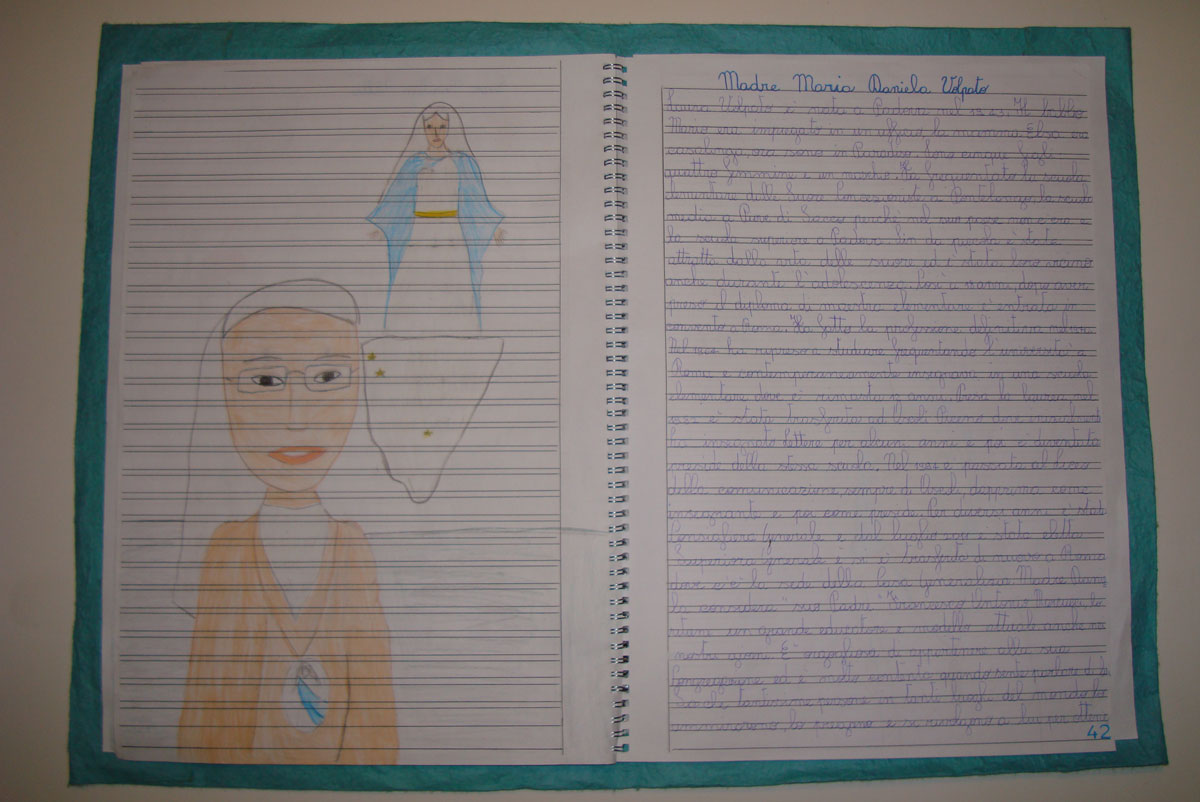 Madre Maria Daniela Volpato
Laura Volpato è nata a Padova nel 1943. Il babbo
Mario era impiegato in un ufficio, la mamma Elisa era
casalinga, ora sono in Paradiso. Sono cinque figli:
quattro femmine e un maschio. Ha frequentato la scuola
elementare dalle Suore Concezioniste a Pontelongo, la scuola
media a Piove di Sacco perché nel suo paese non c'era e
la scuola superiore a Padova. Fin da piccola è stata
attratta dalla vita delle suore ed è stata loro vicino
anche durante l'adolescenza. Così a anni, dopo aver
preso il diploma di maestra elementare è entrata in
convento a Roma. Ha fatto la professione definitiva nel
Nel ha ripreso a studiare frequentando l'università a
Roma e contemporaneamente insegnava in una scuola
elementare dove è rimasta anni. Presa la laurea, nel
è stata trasferita ad Ascoli Piceno dove
ha insegnato Lettere per alcuni anni e poi è diventata
preside della stessa scuola. Nel è passata al liceo
della comunicazione, sempre di Ascoli, dapprima come
insegnante e poi come preside. Per diversi anni è stata
Generale e dal luglio è stata eletta
Superiora Generale e si è trasferita di nuovo a Roma
dove c'è la sede della Casa Generalizia. Madre Danie
la considera "suo Padre" Francesco Antonio Marcucci, lo
ritiene un grande educatore e modello attuale anche nei
nostri giorni. È orgogliosa di appartenere alla sua
Congregazione ed è molto contenta quando sente parlare di lui.
Sa che tantissime persone in tanti luoghi del mondo lo
conoscono, lo pregano e si rivolgono a lui per otte
42